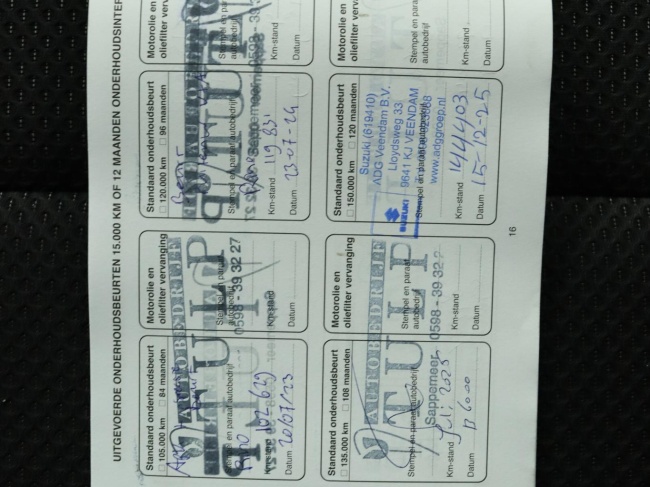 UITGEVOERDE ONDERHOUDSBEURTEN 15.000 KM OF 12 MAANDEN ONDERHOUDSINTER
Standaard onderhoudsbeurt
105.000 km 84 maanden
AUTOBEDRIJF
TULP
Stempel en paraaf autobedrijf
Km-stand
Datum 20/07/23
Motorolie en
oliefilter vervanging
Stempel en paraaf
autobedrijf
0598 - 39 32 27
Km-stand
Datum
Standaard onderhoudsbeurt
120.000 km 96 maanden
Stempel en paraaf autobedrijf
Sappemeer
Km-stand
Datum 23-07-24
Motorolie en
oliefilter vervanging
Stempel en paraaf
autobedrijf
0598 - 39 3
Km-stand
Datum
Standaard onderhoudsbeurt
135.000 km 108 maanden
AUTOBEDRIJF
TULP
Stempel en paraaf autobedrijf
Sappemeer
Km-stand Juli 2025
Datum
Motorolie en
oliefilter vervanging
Stempel en paraaf
autobedrijf
0598 - 39 32
Km-stand
Datum
Standaard onderhoudsbeurt
150.000 km 120 maanden
Suzuki (619410)
ADG Veendam B.V.
Lloydsweg 33
SUZUKI 9641 KJ VEENDAM
Stempel en paraaf autobedrijf
www.adggroep.nl
Km-stand 144403
Datum 15-12-25
Motorolie en
oliefilter vervanging
Stempel en paraaf
autobedrijf
Km-stand
Datum
16